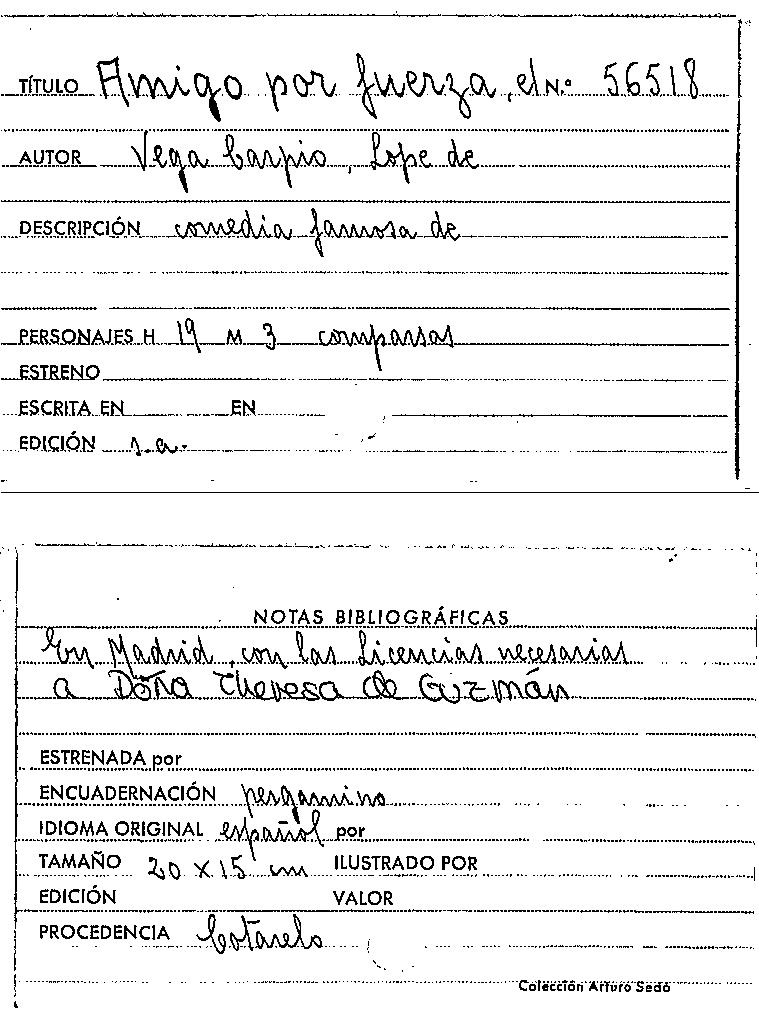 TÍTULO Amigo por fuerza, el N.º 56518
AUTOR Vega Carpio, Lope de
DESCRIPCIÓN comedia famosa de
PERSONAJES H 19 M 3 comparsas
ESTRENO
ESCRITA EN EN
EDICIÓN s.a.
NOTAS BIBLIOGRÁFICAS
En Madrid, con las Licencias necesarias
a Doña Theresa de Guzmán
ESTRENADA por
ENCUADERNACIÓN pergamino
IDIOMA ORIGINAL español por
TAMAÑO 20 x 15 cm ILUSTRADO POR
EDICIÓN VALOR
PROCEDENCIA Cotarelo
Colección Arturo Sedó